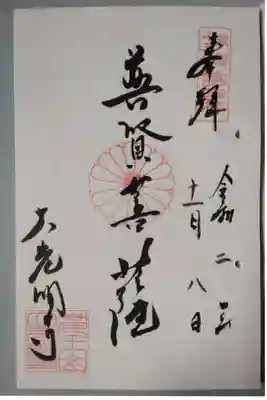 奉拜
令和二年
十一月八日
普賢菩薩
大光明寺